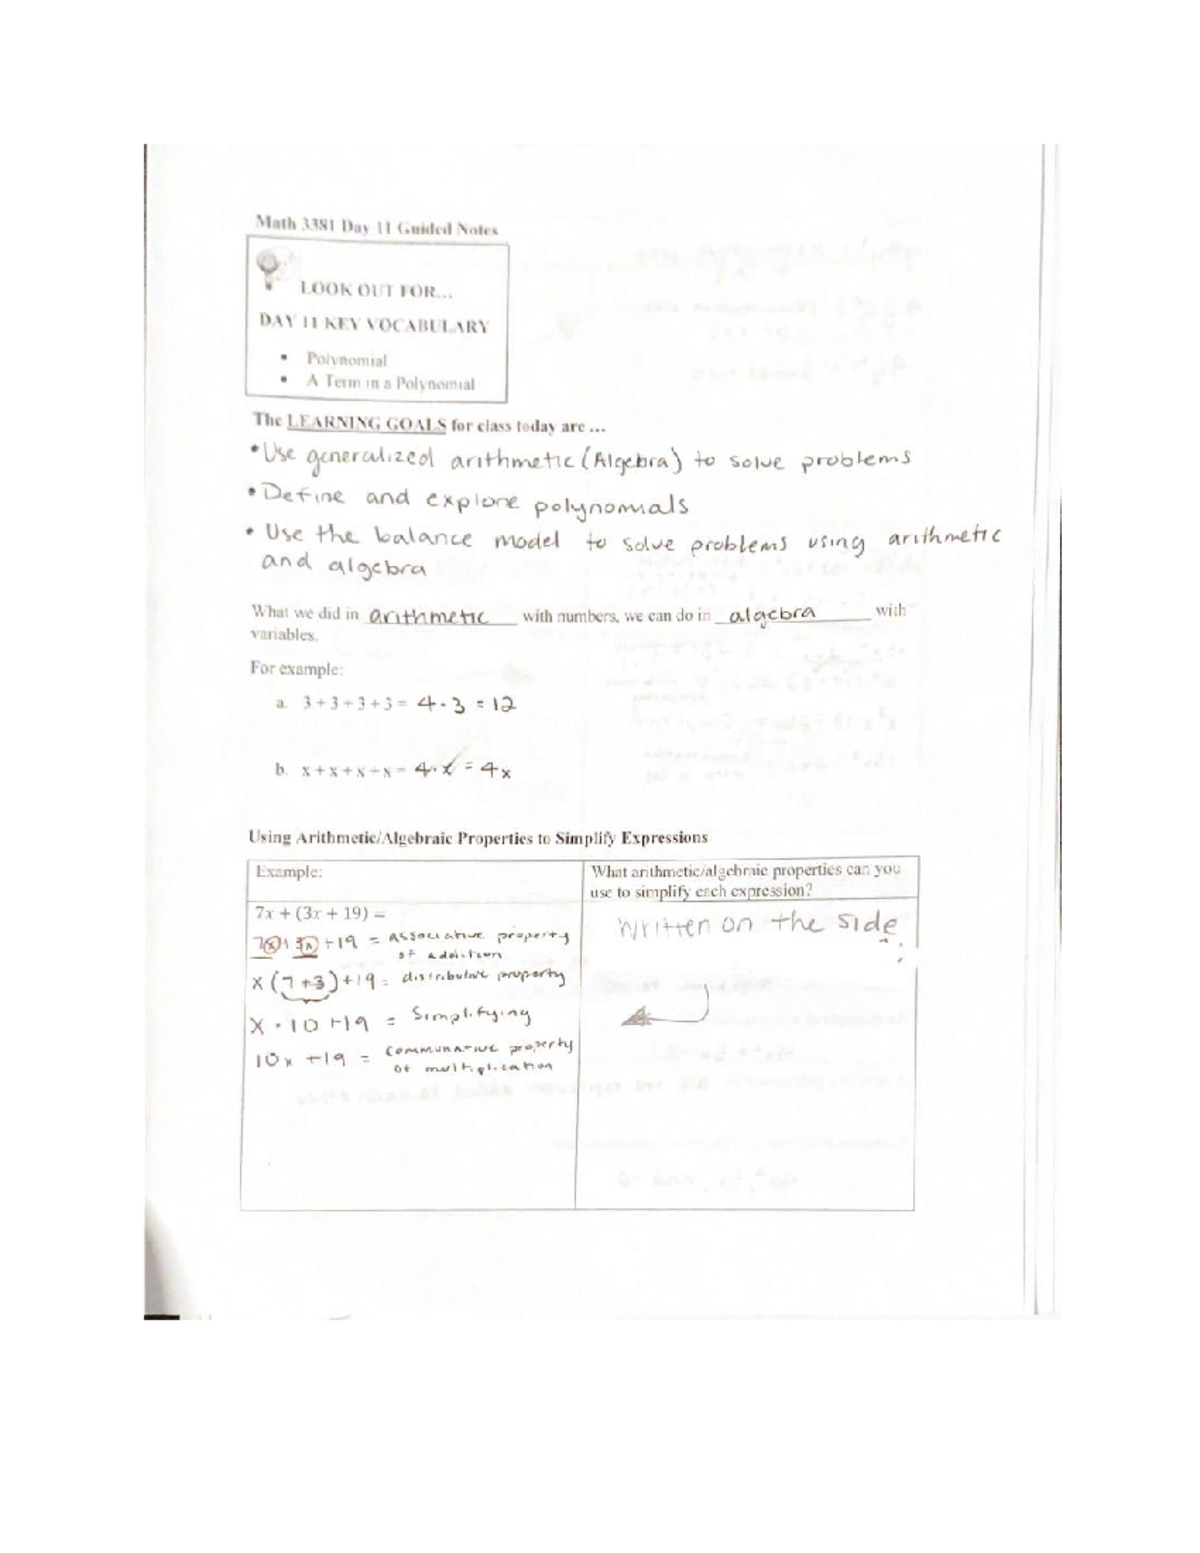 Math 3381 Day 11 Guided Notes
LOOK OUT FOR...
DAY 11 KEY VOCABULARY
• Polynomial
• A Term in a Polynomial
The LEARNING GOALS for class today are ...
• Use generalized arithmetic (Algebra) to solve problems
• Define and explore polynomials
• Use the balance model to solve problems using arithmetic
and algebra
What we did in arithmetic with numbers, we can do in algebra with
variables.
For example:
a. 3 + 3 + 3 + 3 = 4 · 3 = 12
b. x + x + x + x = 4 · x = 4x
Using Arithmetic/Algebraic Properties to Simplify Expressions
Example:
What arithmetic/algebraic properties can you
use to simplify each expression?
7x + (3x + 19) =
7x + 3x + 19 = associative property
of addition
x (7 + 3) + 19 = distributive property
x · 10 + 19 = Simplifying
10x + 19 = commutative property
of multiplication
Written on the side